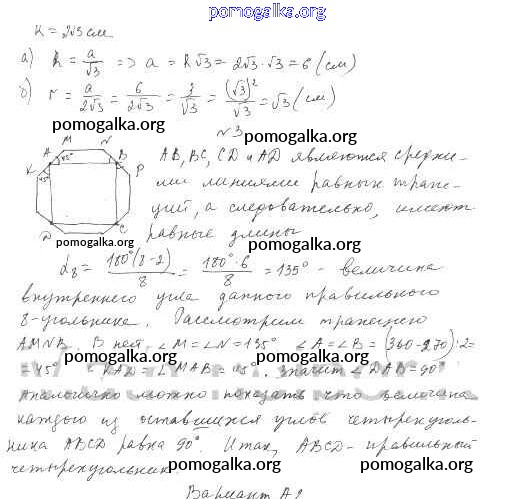 pomogalka.org
R = 2√3 см
а) R = a/√3 => a = R√3 = 2√3 · √3 = 6 (см)
б) r = a/2√3 = 6/2√3 = 3/√3 = (√3)²/√3 = √3 (см)
pomogalka.org pomogalka.org
N3
M N
A 45° B
K 45° P
D C
pomogalka.org
AB, BC, CD и AD являются средни-
ми линиями равных трапе-
ций, а следовательно, имеют
равные длины
pomogalka.org
α₈ = 180°(8-2)/8 = 180°·6/8 = 135° - величина
внутреннего угла данного правильного
8-угольника. Рассмотрим трапецию
pomogalka.org pomogalka.org
AMNB. В ней ∠M = ∠N = 135° ∠A = ∠B = (360-270):2=
= 45° ∠KAD = ∠MAB = 45°. Значит ∠DAB = 90°
pomogalka.org pomogalka.org
Аналогично можно показать что величина
каждого из оставшихся углов четырехуголь-
pomogalka.org pomogalka.org
ника ABCD равна 90°. Итак, ABCD - правильный
четырехугольник.
pomogalka.org pomogalka.org
Вариант А2